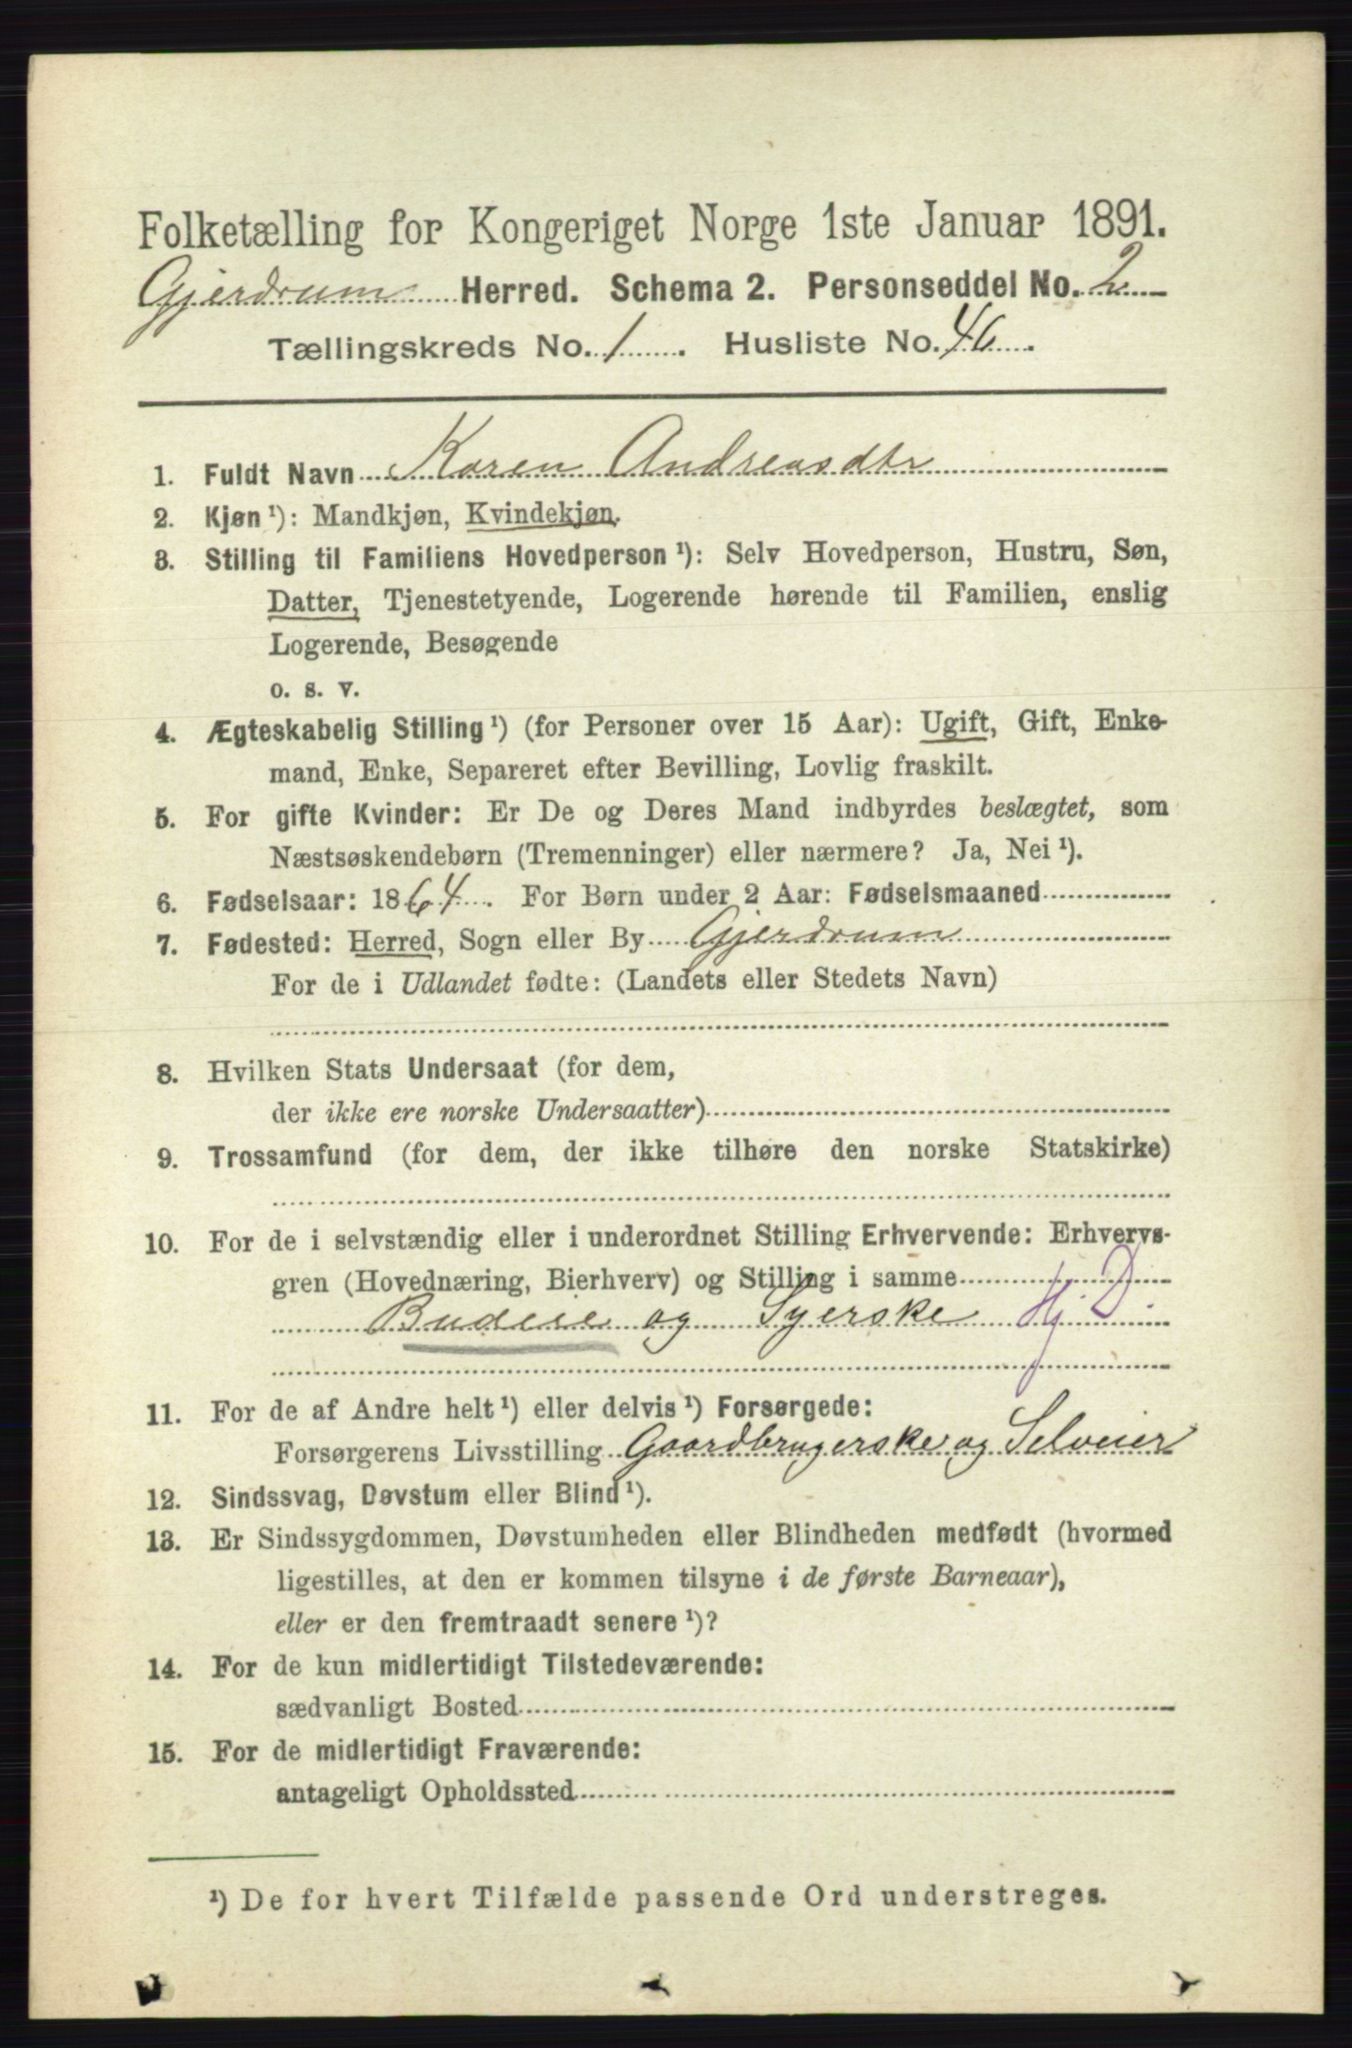 Folketælling for Kongeriget Norge 1ste Januar 1891.
Gjerdrum Herred. Schema 2. Personseddel No. 2
Tællingskreds No. 1. Husliste No. 46.
1. Fuldt Navn Karen Andreasdtr
2. Kjøn ¹): Mandkjøn, Kvindekjøn.
3. Stilling til Familiens Hovedperson ¹): Selv Hovedperson, Hustru, Søn,
Datter, Tjenestetyende, Logerende hørende til Familien, enslig
Logerende, Besøgende
o. s. v.
4. Ægteskabelig Stilling ¹) (for Personer over 15 Aar): Ugift, Gift, Enke-
mand, Enke, Separeret efter Bevilling, Lovlig fraskilt.
5. For gifte Kvinder: Er De og Deres Mand indbyrdes beslægtet, som
Næstsøskendebørn (Tremenninger) eller nærmere? Ja, Nei ¹).
6. Fødselsaar: 1864. For Børn under 2 Aar: Fødselsmaaned
7. Fødested: Herred, Sogn eller By Gjerdrum
For de i Udlandet fødte: (Landets eller Stedets Navn)
8. Hvilken Stats Undersaat (for dem,
der ikke ere norske Undersaatter)
9. Trossamfund (for dem, der ikke tilhøre den norske Statskirke)
10. For de i selvstændig eller i underordnet Stilling Erhvervende: Erhvervs-
gren (Hovednæring, Bierhverv) og Stilling i samme
Budeie og Syerske Hj. D.
11. For de af Andre helt ¹) eller delvis ¹) Forsørgede:
Forsørgerens Livsstilling Gaardbrugerske og Selveier
12. Sindssvag, Døvstum eller Blind ¹).
13. Er Sindssygdommen, Døvstumheden eller Blindheden medfødt (hvormed
ligestilles, at den er kommen tilsyne i de første Barneaar),
eller er den fremtraadt senere ¹)?
14. For de kun midlertidigt Tilstedeværende:
sædvanligt Bosted
15. For de midlertidigt Fraværende:
antageligt Opholdssted
¹) De for hvert Tilfælde passende Ord understreges.